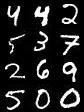 442
537
269
500